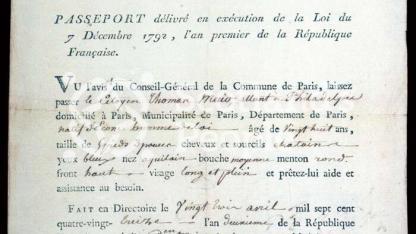 PASSEPORT délivré en exécution de la Loi du
7 Décembre 1792, l'an premier de la République
Française.
VU l'avis du Conseil-Général de la Commune de Paris, laissez
passer le Citoyen Thomas à Philadelphie
domicilié à Paris, Municipalité de Paris, Département de Paris,
natif d'Ecosse homme de loi âgé de Vingt huit ans,
taille de 5 pieds pouces cheveux et sourcils chatains
yeux bleus nez aquilain bouche moyenne menton rond
front haut visage long et plein et prêtez-lui aide et
assistance au besoin.
FAIT en Directoire le Vingt trois avril mil sept cent
quatre-vingt-treize l'an deuxieme de la République